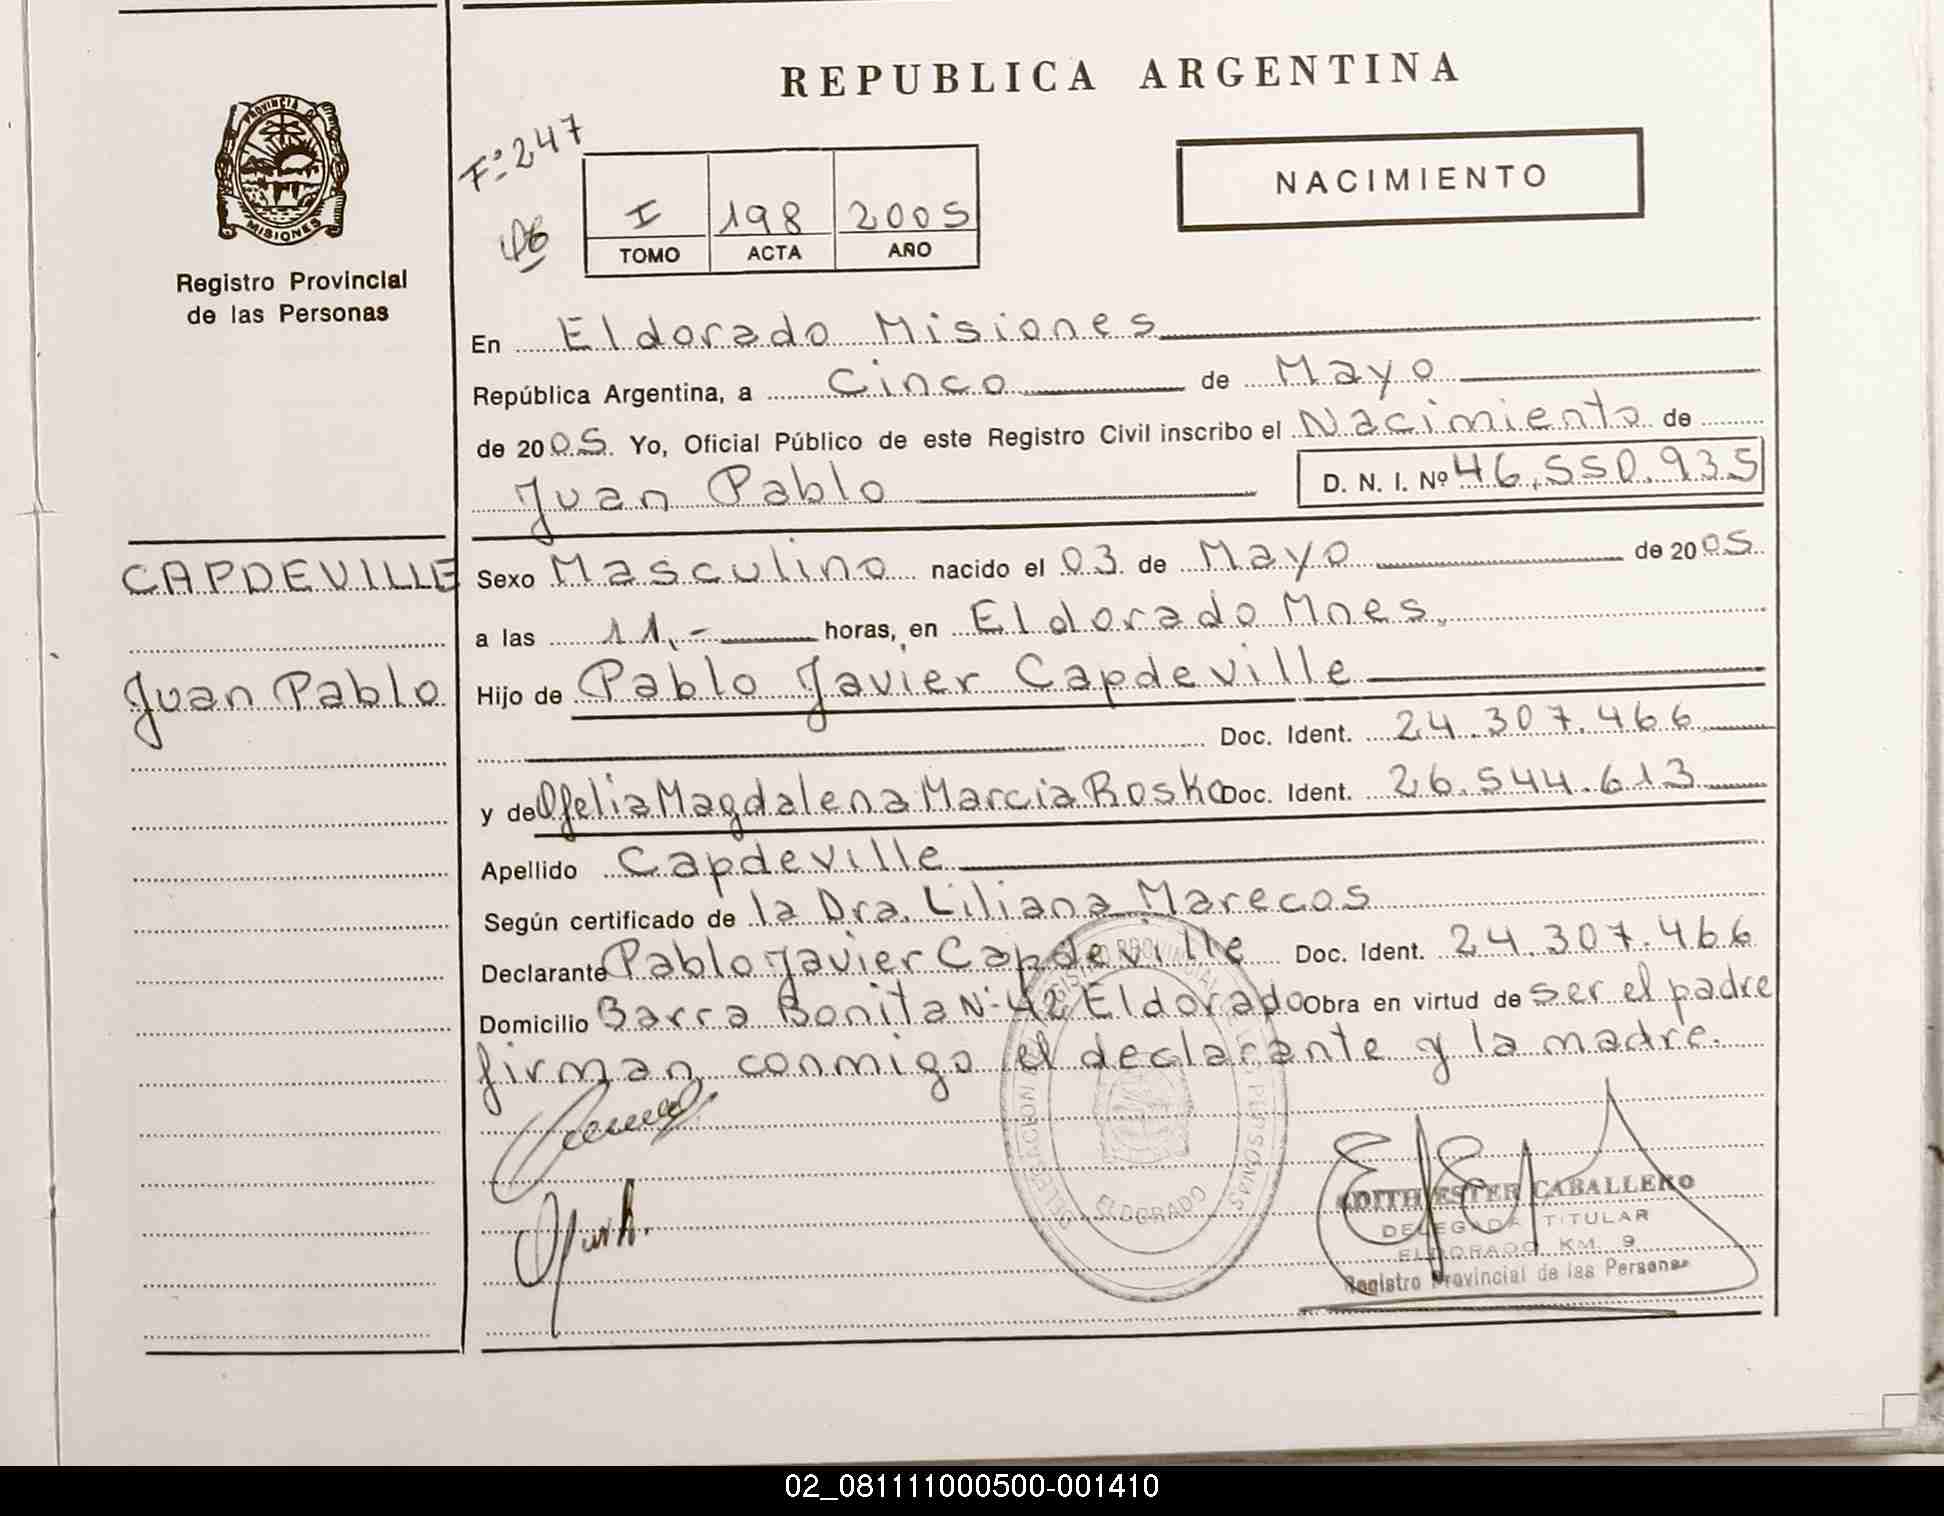 REPUBLICA ARGENTINA
PROVINCIA DE
MISIONES
Registro Provincial
de las Personas
Fº 247
I 198 2005
TOMO ACTA AÑO
NACIMIENTO
En Eldorado Misiones
República Argentina, a Cinco de Mayo
de 2005. Yo, Oficial Público de este Registro Civil inscribo el Nacimiento de
Juan Pablo D. N. I. Nº 46.550.935
CAPDEVILLE
Juan Pablo
Sexo Masculino nacido el 03 de Mayo de 2005
a las 11,- horas, en Eldorado Mnes.
Hijo de Pablo Javier Capdeville
Doc. Ident. 24.307.466
y de Ofelia Magdalena Marcia Rosko Doc. Ident. 26.544.613
Apellido Capdeville
Según certificado de la Dra. Liliana Marecos
Declarante Pablo Javier Capdeville Doc. Ident. 24.307.466
Domicilio Barra Bonita Nº 42 Eldorado Obra en virtud de ser el padre
firman conmigo el declarante y la madre.
DELEGACION REGISTRO PROVINCIAL DE LAS PERSONAS
ELDORADO
EDITH ESTER CABALLERO
DELEGADA TITULAR
ELDORADO KM. 9
Registro Provincial de las Personas
02_081111000500-001410